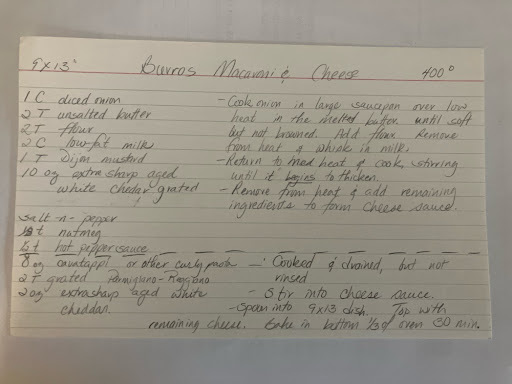 9x13" Burros Macaroni & Cheese 400°
1 C diced onion
2 T unsalted butter
2 T flour
2 C low-fat milk
1 T Dijon mustard
10 oz extra sharp aged
white chedar grated
- Cook onion in large saucepan over low
heat in the melted butter until soft
but not browned. Add flour. Remove
from heat & whisk in milk.
- Return to med heat & cook, stirring
until it begins to thicken.
- Remove from heat & add remaining
ingredients to form cheese sauce.
salt -n- pepper
t nutmeg
t hot pepper sauce
8 oz cavatappi or other curly pasta - Cooked & drained, but not
rinsed
2 T grated Parmigiano-Reggiano
2 oz extrasharp aged white
cheddar.
- Stir into cheese sauce.
- Spoon into 9x13 dish. Top with
remaining cheese. Bake in bottom 1/3 of oven 30 min.